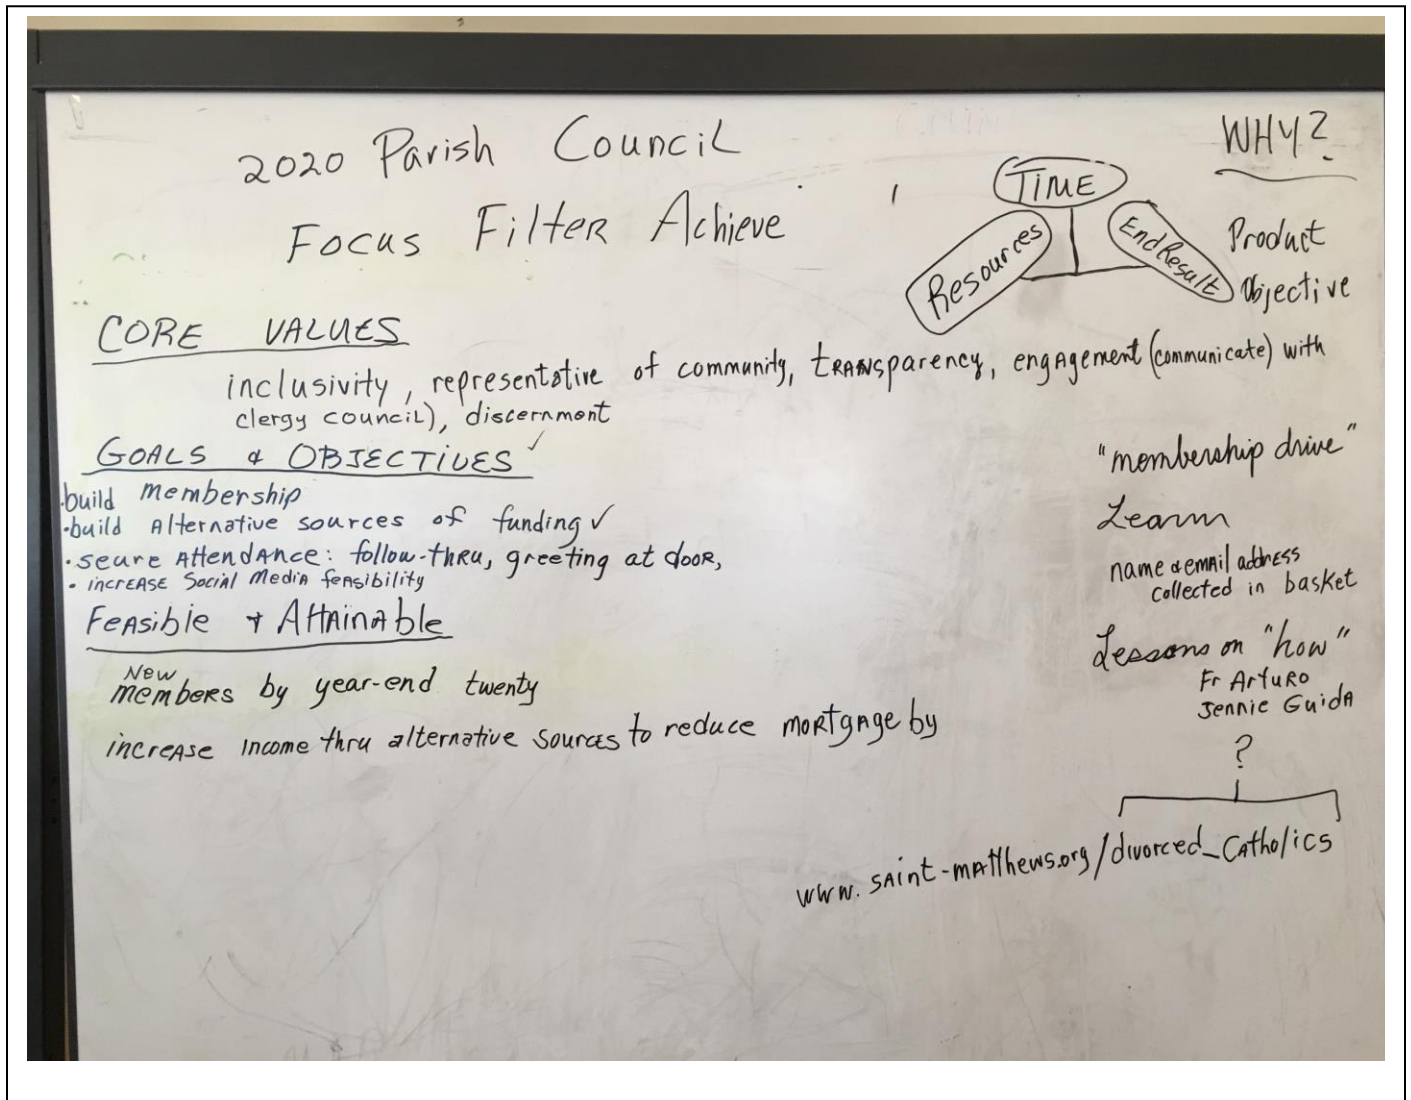 2020 Parish Council
Focus Filter Achieve
WHY?
TIME
Resources
End Result
Product
Objective
CORE VALUES
inclusivity, representative of community, transparency, engagement (communicate) with
clergy council), discernment
GOALS & OBJECTIVES ✓
·build membership
·build Alternative sources of funding ✓
·seure Attendance: follow-thru, greeting at door,
· increase Social Media feasibility
Feasible & Attainable
New
members by year-end twenty
increase income thru alternative sources to reduce mortgage by
"membership drive"
Learn
name & email address
collected in basket
Lessons on "how"
Fr Arturo
Jennie Guida
?
www.saint-matthews.org/divorced_Catholics